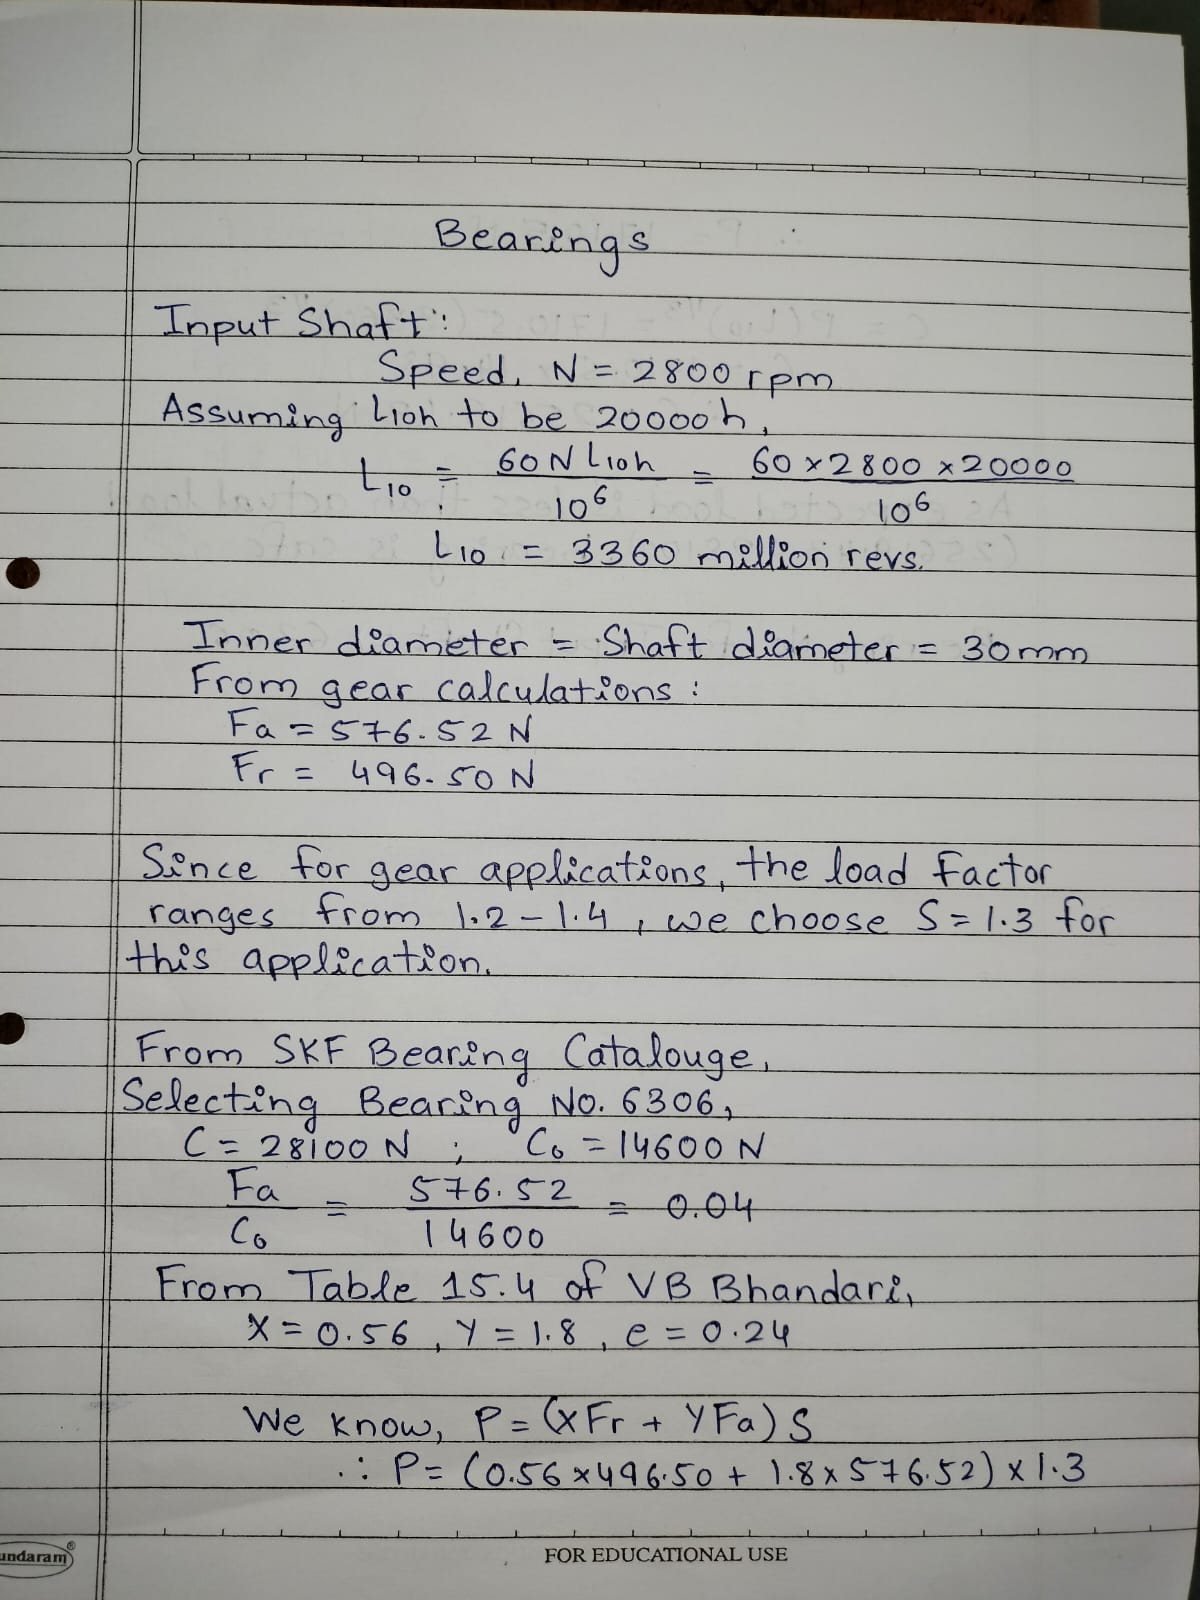 Bearings
Input Shaft:
Speed, N = 2800 rpm
Assuming L10h to be 20000 h,
L10 = 60 N L10h / 10^6 = 60 x 2800 x 20000 / 10^6
L10 = 3360 million revs.
Inner diameter = Shaft diameter = 30mm
From gear calculations :
Fa = 576.52 N
Fr = 496.50 N
Since for gear applications, the load factor
ranges from 1.2 - 1.4 , we choose S = 1.3 for
this application.
From SKF Bearing Catalouge,
Selecting Bearing No. 6306,
C = 28100 N ; Co = 14600 N
Fa / Co = 576.52 / 14600 = 0.04
From Table 15.4 of VB Bhandari,
X = 0.56 , Y = 1.8 , e = 0.24
We know, P = (XFr + YFa) S
∴ P = (0.56 x 496.50 + 1.8 x 576.52) x 1.3
undaram®
FOR EDUCATIONAL USE